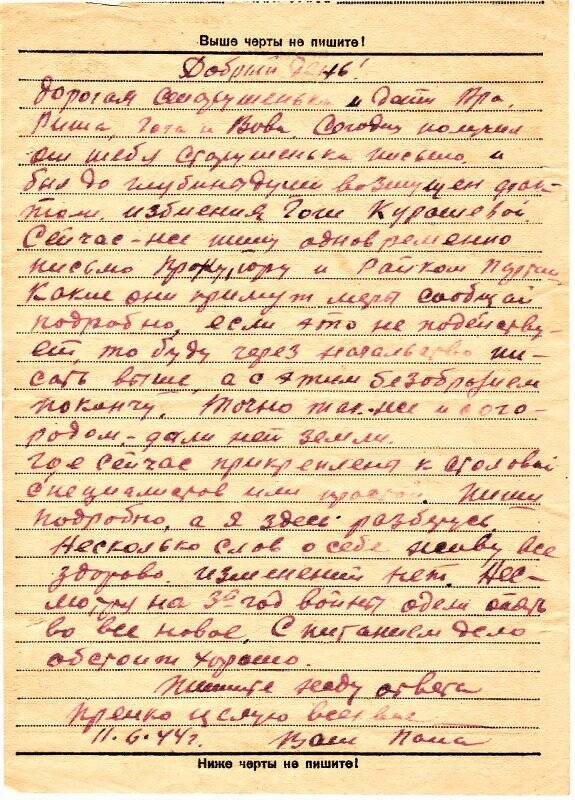 Выше черты не пишите!
Добрый день!
Дорогая старушенька и дети Ира,
Риша, Гога и Вова. Сегодня получил
от тебя старушенька письмо, и
был до глубины души возмущен фак-
том избиения Гоги Курашевой.
Сейчас-же пишу одновременно
письмо Прокурору и Райком Партии
Какие они примут меры сообщай
подробно, если это не подейству-
ет то буду через начальство пи-
сать выше, а с этим безобразием
покончу. Точно так-же и с ого-
родом-дали нет земли.
Где сейчас прикреплена к столовой
специалистов или простой. Пиши
подробно, а я здесь разберусь.
Несколько слов о себе живу все
здорово, изменений нет. Нес-
мотря на 3й год войны одели опять
во все новое. С питанием дело
обстоит хорошо.
Пишите жду ответа
крепко целую всех вас
11.6.44г. Ваш Папа
Ниже черты не пишите!